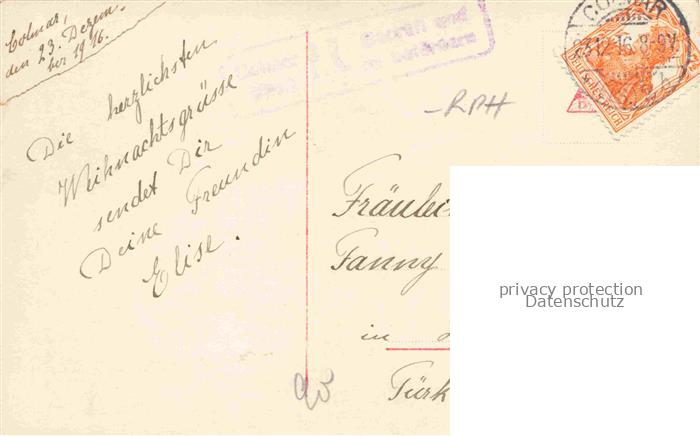 Colmar,
den 23. Dezem-
ber 1916.
Geprüft und
zu befördern
COLMAR
12.16.8-9V.
DEUTSCHES REICH
RPH
Die herzlichsten
Weihnachtsgrüsse
sendet Dir
Deine Freundin
Elise.
Fräulei
Fanny
in
Türk
privacy protection
Datenschutz